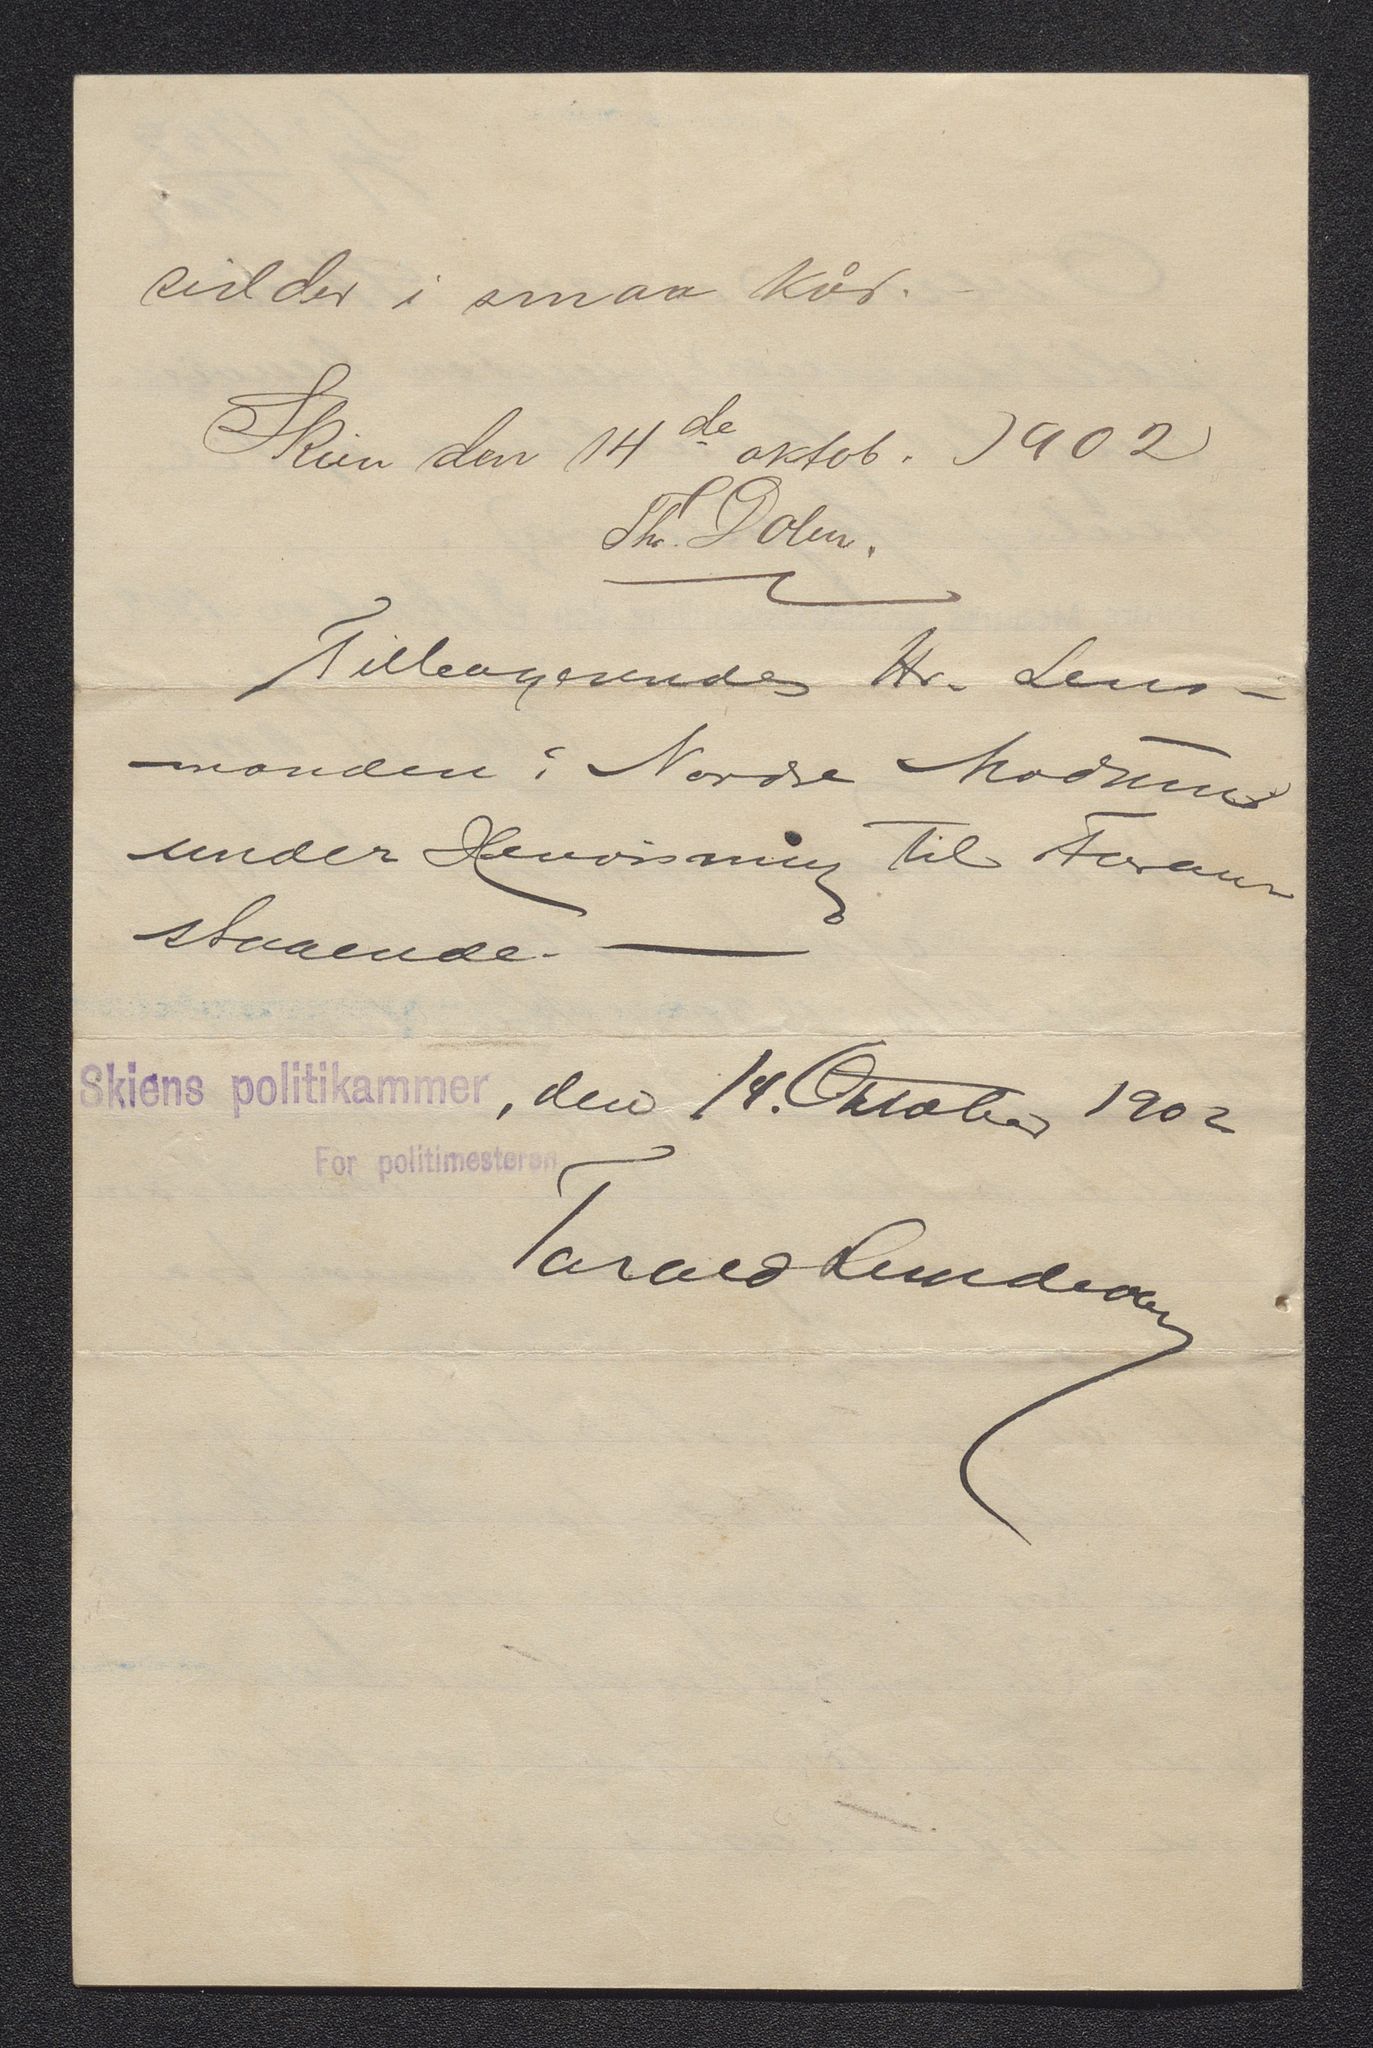 sidder i smaa kår. -
Skien den 14de oktob. 1902
Th. Dolen.
Tilbagesendes Hr. Lens-
manden i Nordre Modum
under Henvisning til Foran-
staaende. —
Skiens politikammer, den 14. Oktober 1902
For politimesteren
Tarald